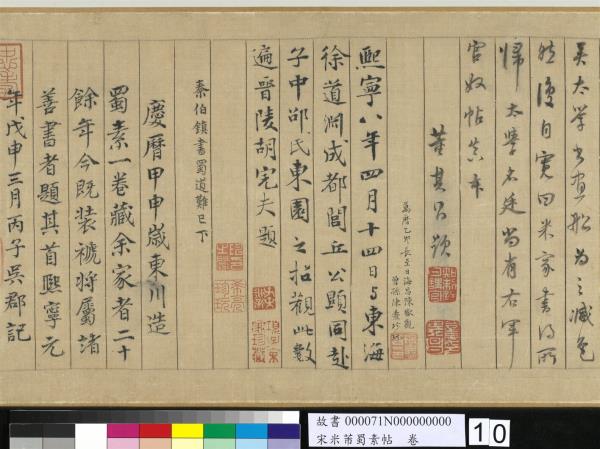 吳太學書畫船為之減色
然後自寬曰米家書得所
歸太學名廷尚有右軍
官奴帖真本
董其昌題
萬曆乙卯長至日海昌陳瓛觀
曾孫陳
熙寧八年四月十四日與東海
徐道淵成都閭丘公顯同赴
子中邵氏東園之招觀此數
遍晉陵胡完夫題
秦伯鎮書蜀道難已下
慶曆甲申歲東川造
蜀素一卷藏余家者二十
餘年今既裝褫將屬諸
善書者題其首熙寧元
年戊申三月丙子吳郡記
故書 000071N000000000
宋米芾蜀素帖 卷
10